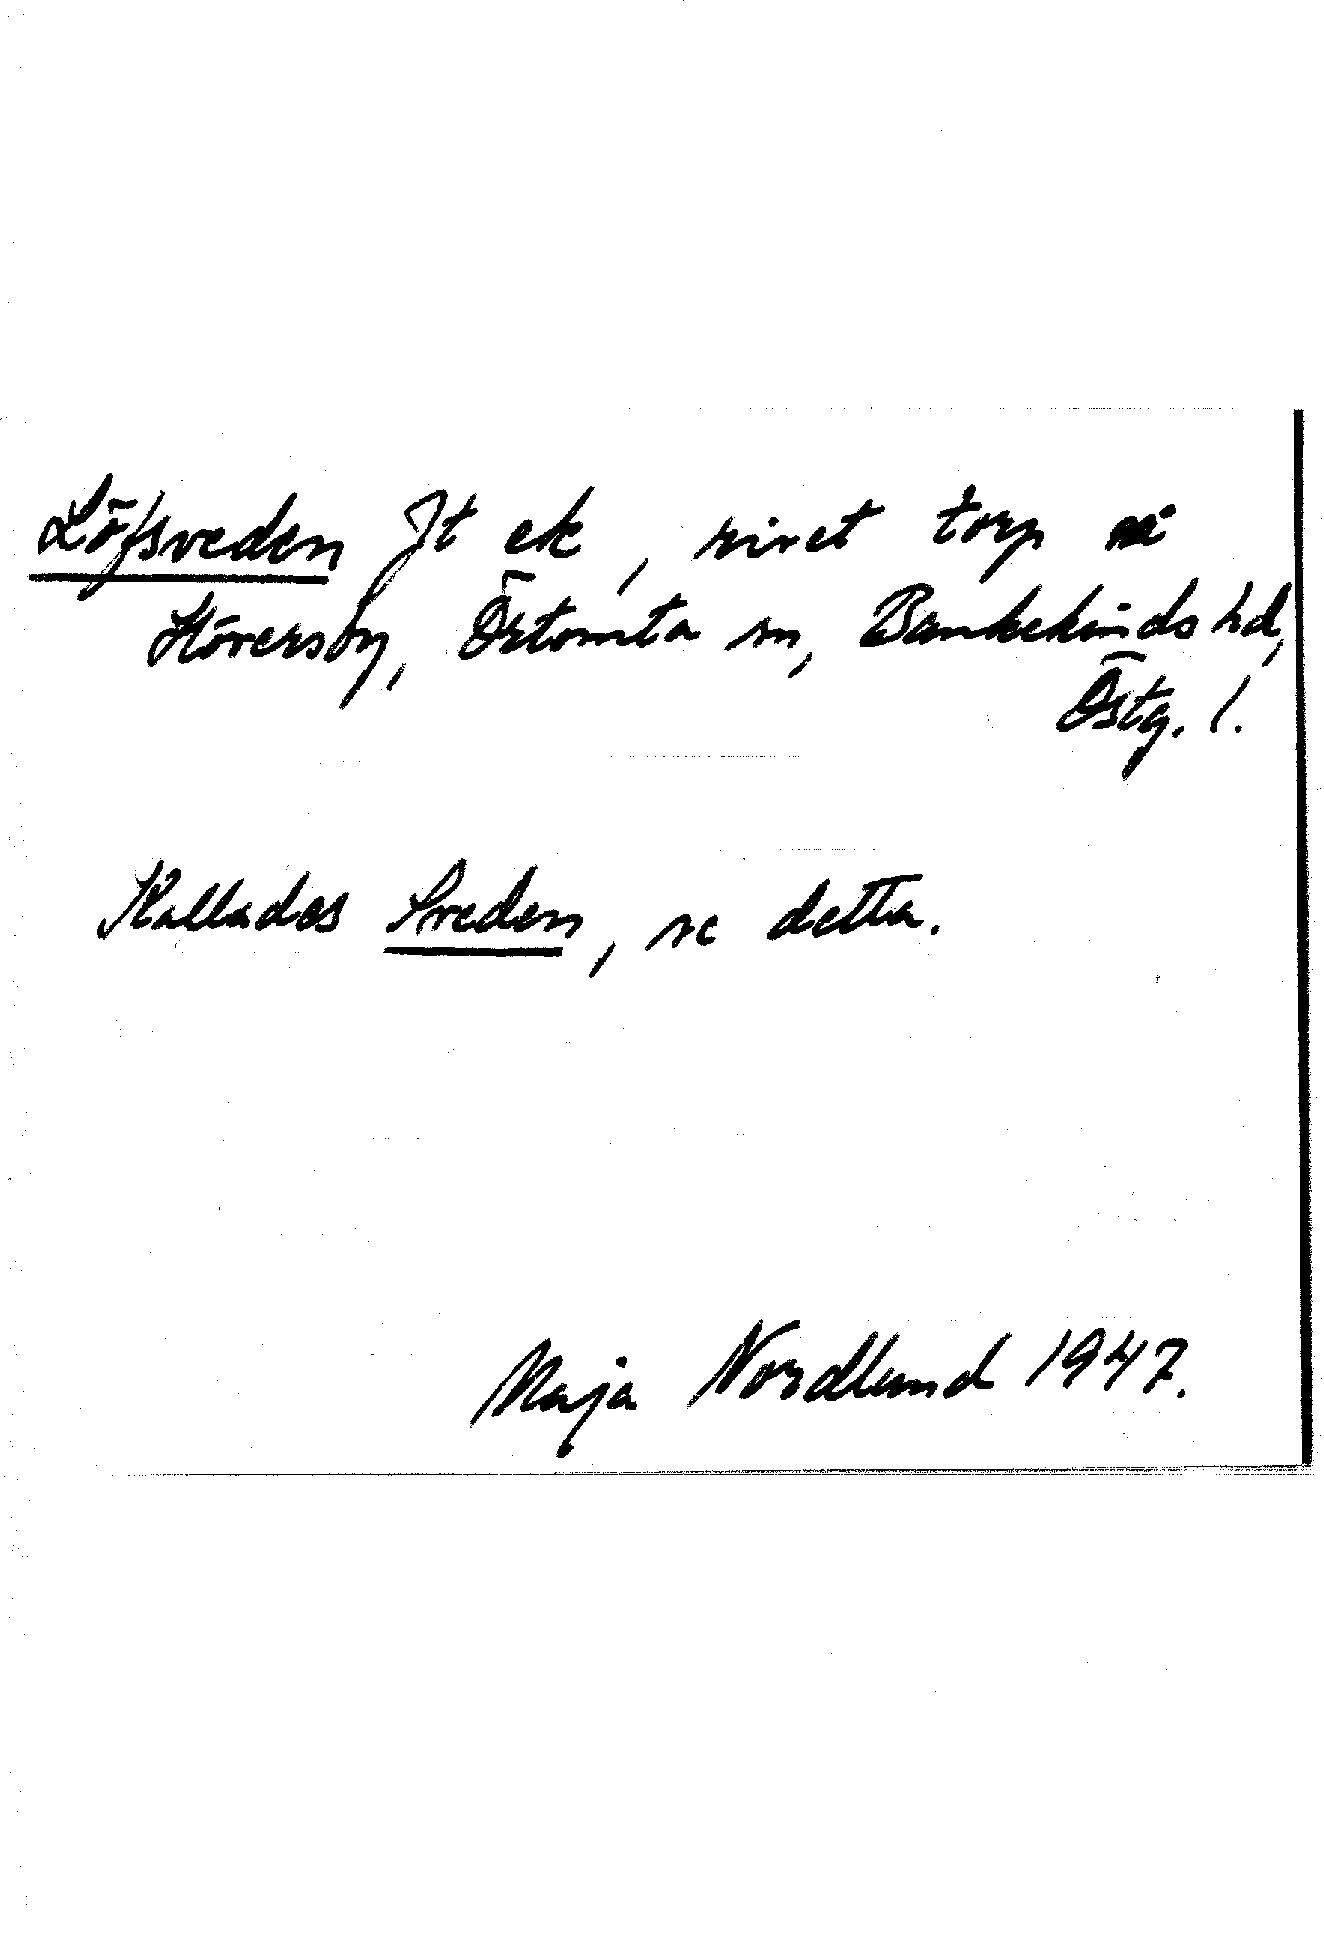 Löfsveden Jt ek, rivet torp i
Höversby, Örtomta sn, Bankekinds hd,
Östg. l.
Kallades Sveden, se detta.
Maja Nordlund 1947.